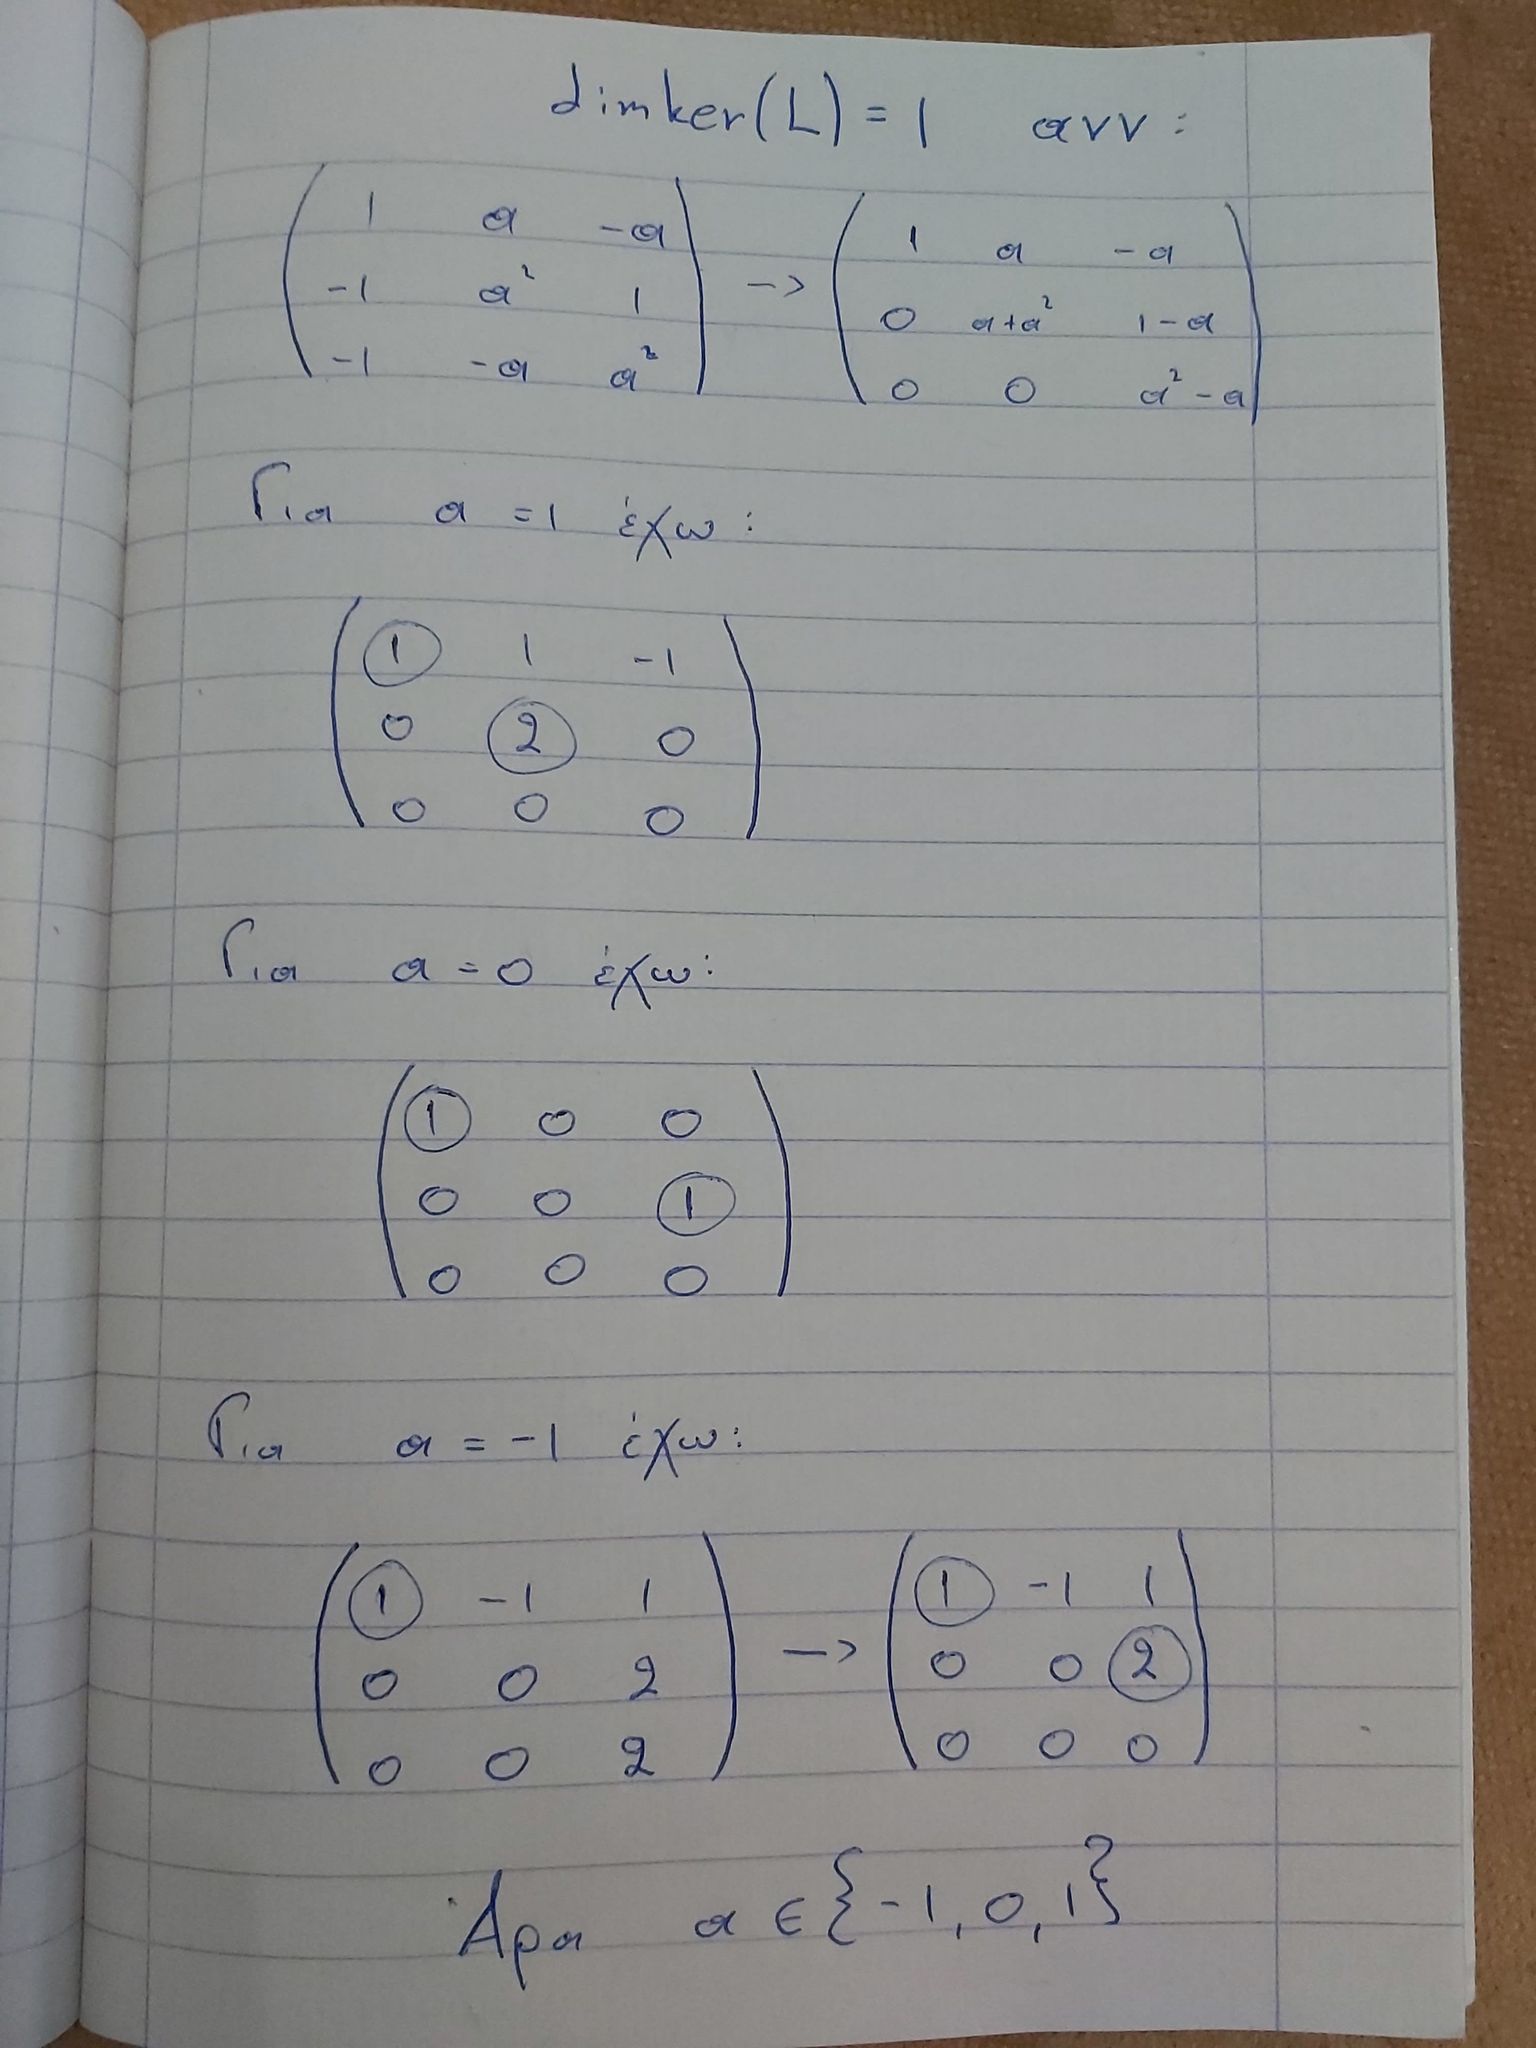 dimker(L) = 1 ανν :
( 1 a -a ) ( 1 a -a )
( -1 a² 1 ) -> ( 0 a+a² 1-a )
( -1 -a a² ) ( 0 0 a²-a )
Για a = 1 έχω :
( 1 1 -1 )
( 0 2 0 )
( 0 0 0 )
Για a = 0 έχω :
( 1 0 0 )
( 0 0 1 )
( 0 0 0 )
Για a = -1 έχω :
( 1 -1 1 ) ( 1 -1 1 )
( 0 0 2 ) -> ( 0 0 2 )
( 0 0 2 ) ( 0 0 0 )
Άρα a ∈ {-1, 0, 1}